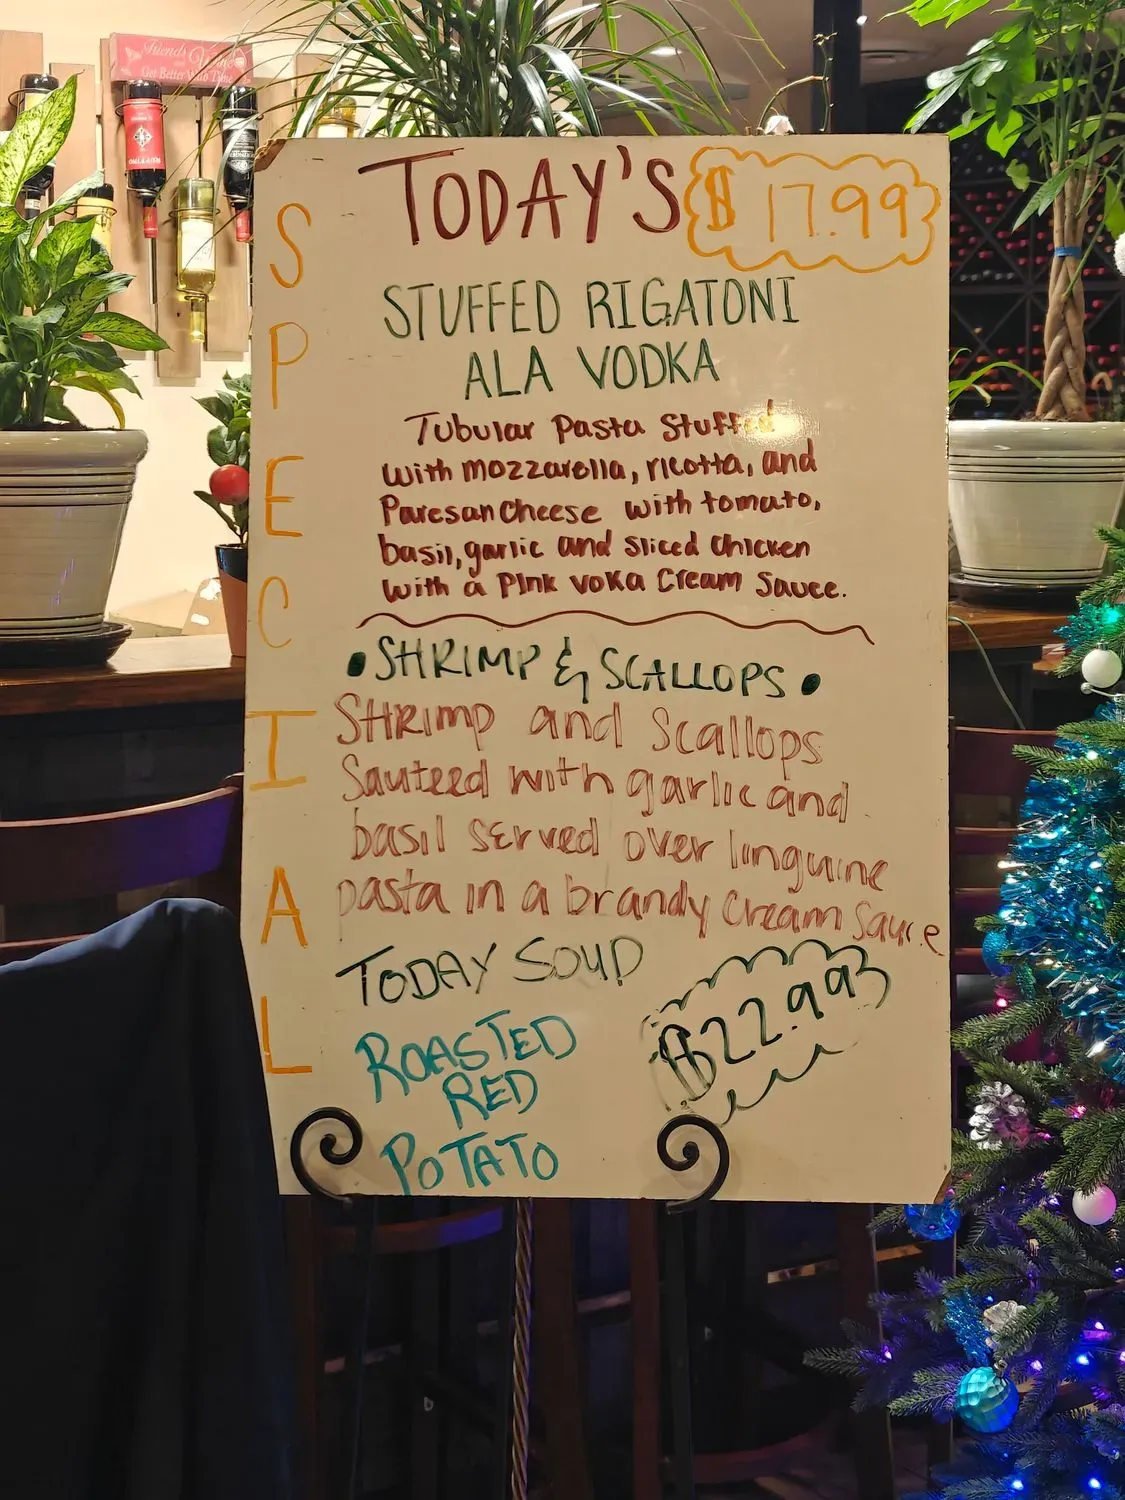 Friends and Wine
Get Better With Time
TODAY'S $17.99
SPECIAL
STUFFED RIGATONI
ALA VODKA
Tubular Pasta Stuffed
with mozzarella, ricotta, and
Paresan Cheese with tomato,
basil, garlic and sliced chicken
with a Pink voka Cream Sauce.
• SHRIMP & SCALLOPS •
SHRimp and Scallops
Sauteed with garlic and
basil served over linguine
pasta in a brandy cream sauce
TODAY SOUP
$22.99
ROASTED
RED
POTATO